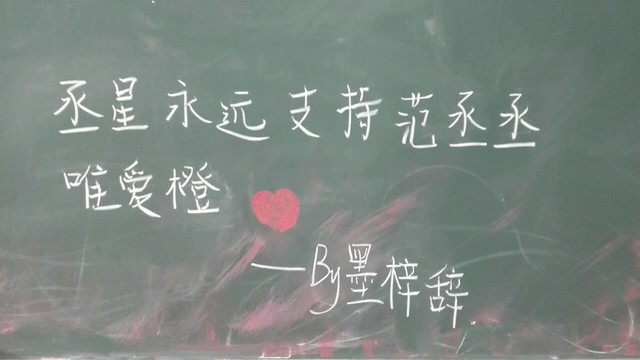 丞星永远支持范丞丞
唯爱橙
—By墨梓辞